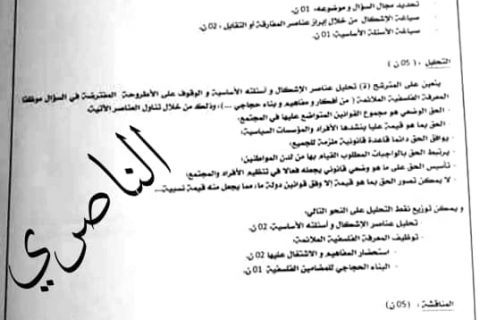 - تحديد مجال السؤال و موضوعه: 01 ن.
- صياغة الإشكال من خلال إبراز عناصر المفارقة أو التقابل : 02 ن
- صياغة الأسئلة الأساسية: 01 ن.
التحليل : (05 ن)
يتعين على المترشح (ة) تحليل عناصر الإشكال و أسئلته الأساسية و الوقوف على الأطروحة المفترضة في السؤال موظفا
المعرفة الفلسفية الملائمة ( من أفكار و مفاهيم و بناء حجاجي ...)، وذلك من خلال تناول العناصر الآتية:
- الحق الوضعي هو مجموع القوانين المتواضع عليها في المجتمع؛
- الحق بما هو قيمة عليا ينشدها الأفراد والمؤسسات السياسية؛
- يوافق الحق دائما قاعدة قانونية ملزمة للجميع؛
- يرتبط الحق بالواجبات المطلوب القيام بها من لدن المواطنين؛
- تأسيس الحق على ما هو وضعي قانوني يجعله فعالا في تنظيم الأفراد والمجتمع؛
- لا يمكن تصور الحق بما هو قيمة إلا وفق قوانين دولة ما، مما يجعل منه قيمة نسبية...
و يمكن توزيع نقط التحليل على النحو التالي:
- تحليل عناصر الإشكال و أسئلته الأساسية: 02 ن.
- توظيف المعرفة الفلسفية الملائمة:
- استحضار المفاهيم و الاشتغال عليها 02 ن
- البناء الحجاجي للمضامين الفلسفية 01 ن.
المناقشة : (05 ن)
الناصري